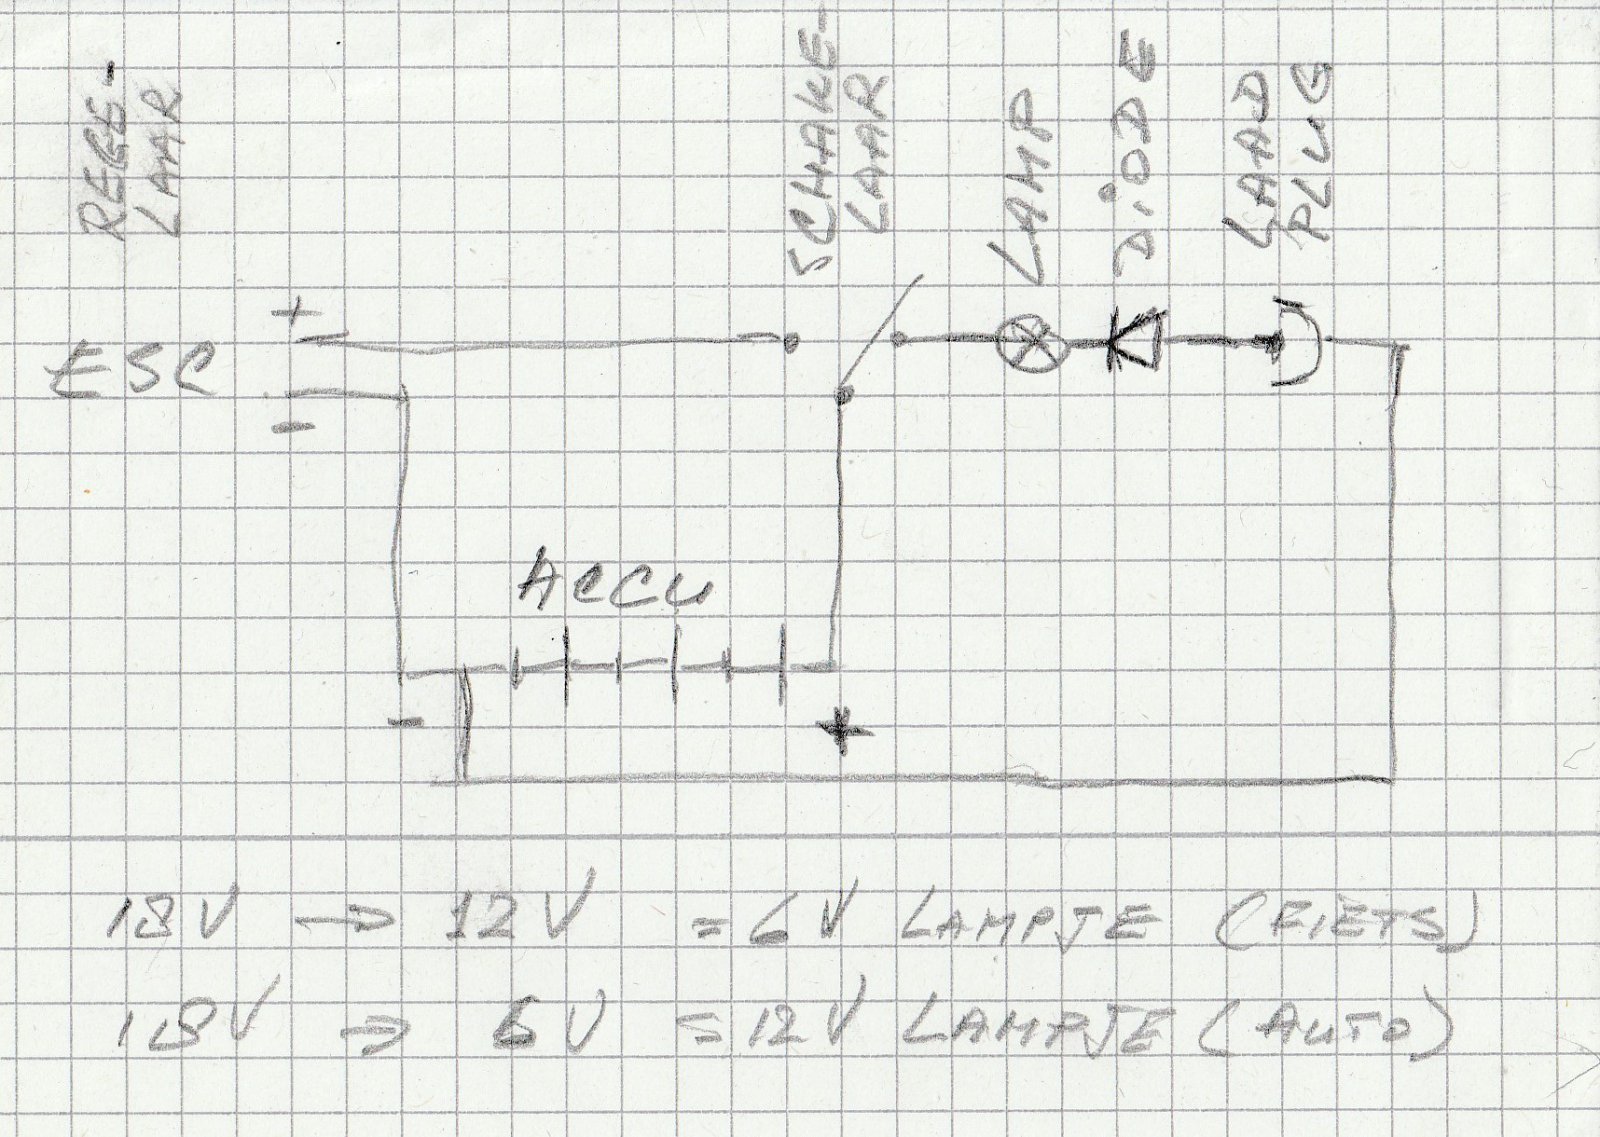 REGE-
LAAR
SCHAKE-
LAAR
LAMP
DIODE
LAAD
PLUG
+
ESC
-
ACCU
- +
18V → 12V = 6V LAMPJE (FIETS)
18V → 6V = 12V LAMPJE (AUTO)